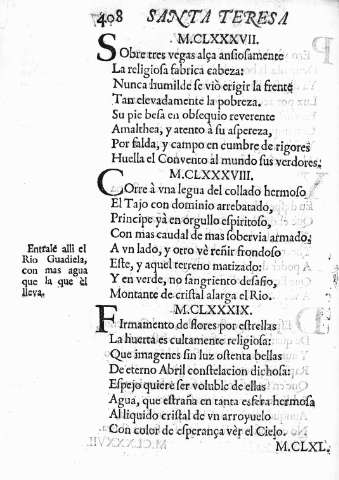 408 SANTA TERESA
M.CLXXXVII.
SObre tres vegas alça ansiosamente
La religiosa fabrica cabeza:
Nunca humilde se viò erigir la frente
Tan elevadamente la pobreza.
Su pie besa en obsequio reverente
Amalthea, y atento à su aspereza,
Por falda, y campo en cumbre de rigores
Huella el Convento al mundo sus verdores.
M.CLXXXVIII.
COrre à vna legua del collado hermoso
El Tajo con dominio arrebatado,
Principe yà en orgullo espiritoso,
Con mas caudal de mas sobervia armado;
A vn lado, y otro vè reñir frondoso
Este, y aquel terreno matizado:
Y en verde, no sangriento desafio,
Montante de cristal alarga el Rio.
Entrale alli el
Rio Guadiela,
con mas agua
que la que èl
lleva.
M.CLXXXIX.
FIrmamento de flores por estrellas
La huerta es cultamente religiosa:
Que imagenes sin luz ostenta bellas
De eterno Abril constelacion dichosa:
Espejo quiere ser voluble de ellas
Agua, que estraña en tanta esfera hermosa
Al liquido cristal de vn arroyuelo
Con color de esperança vèr el Cielo.
M.CLXL.